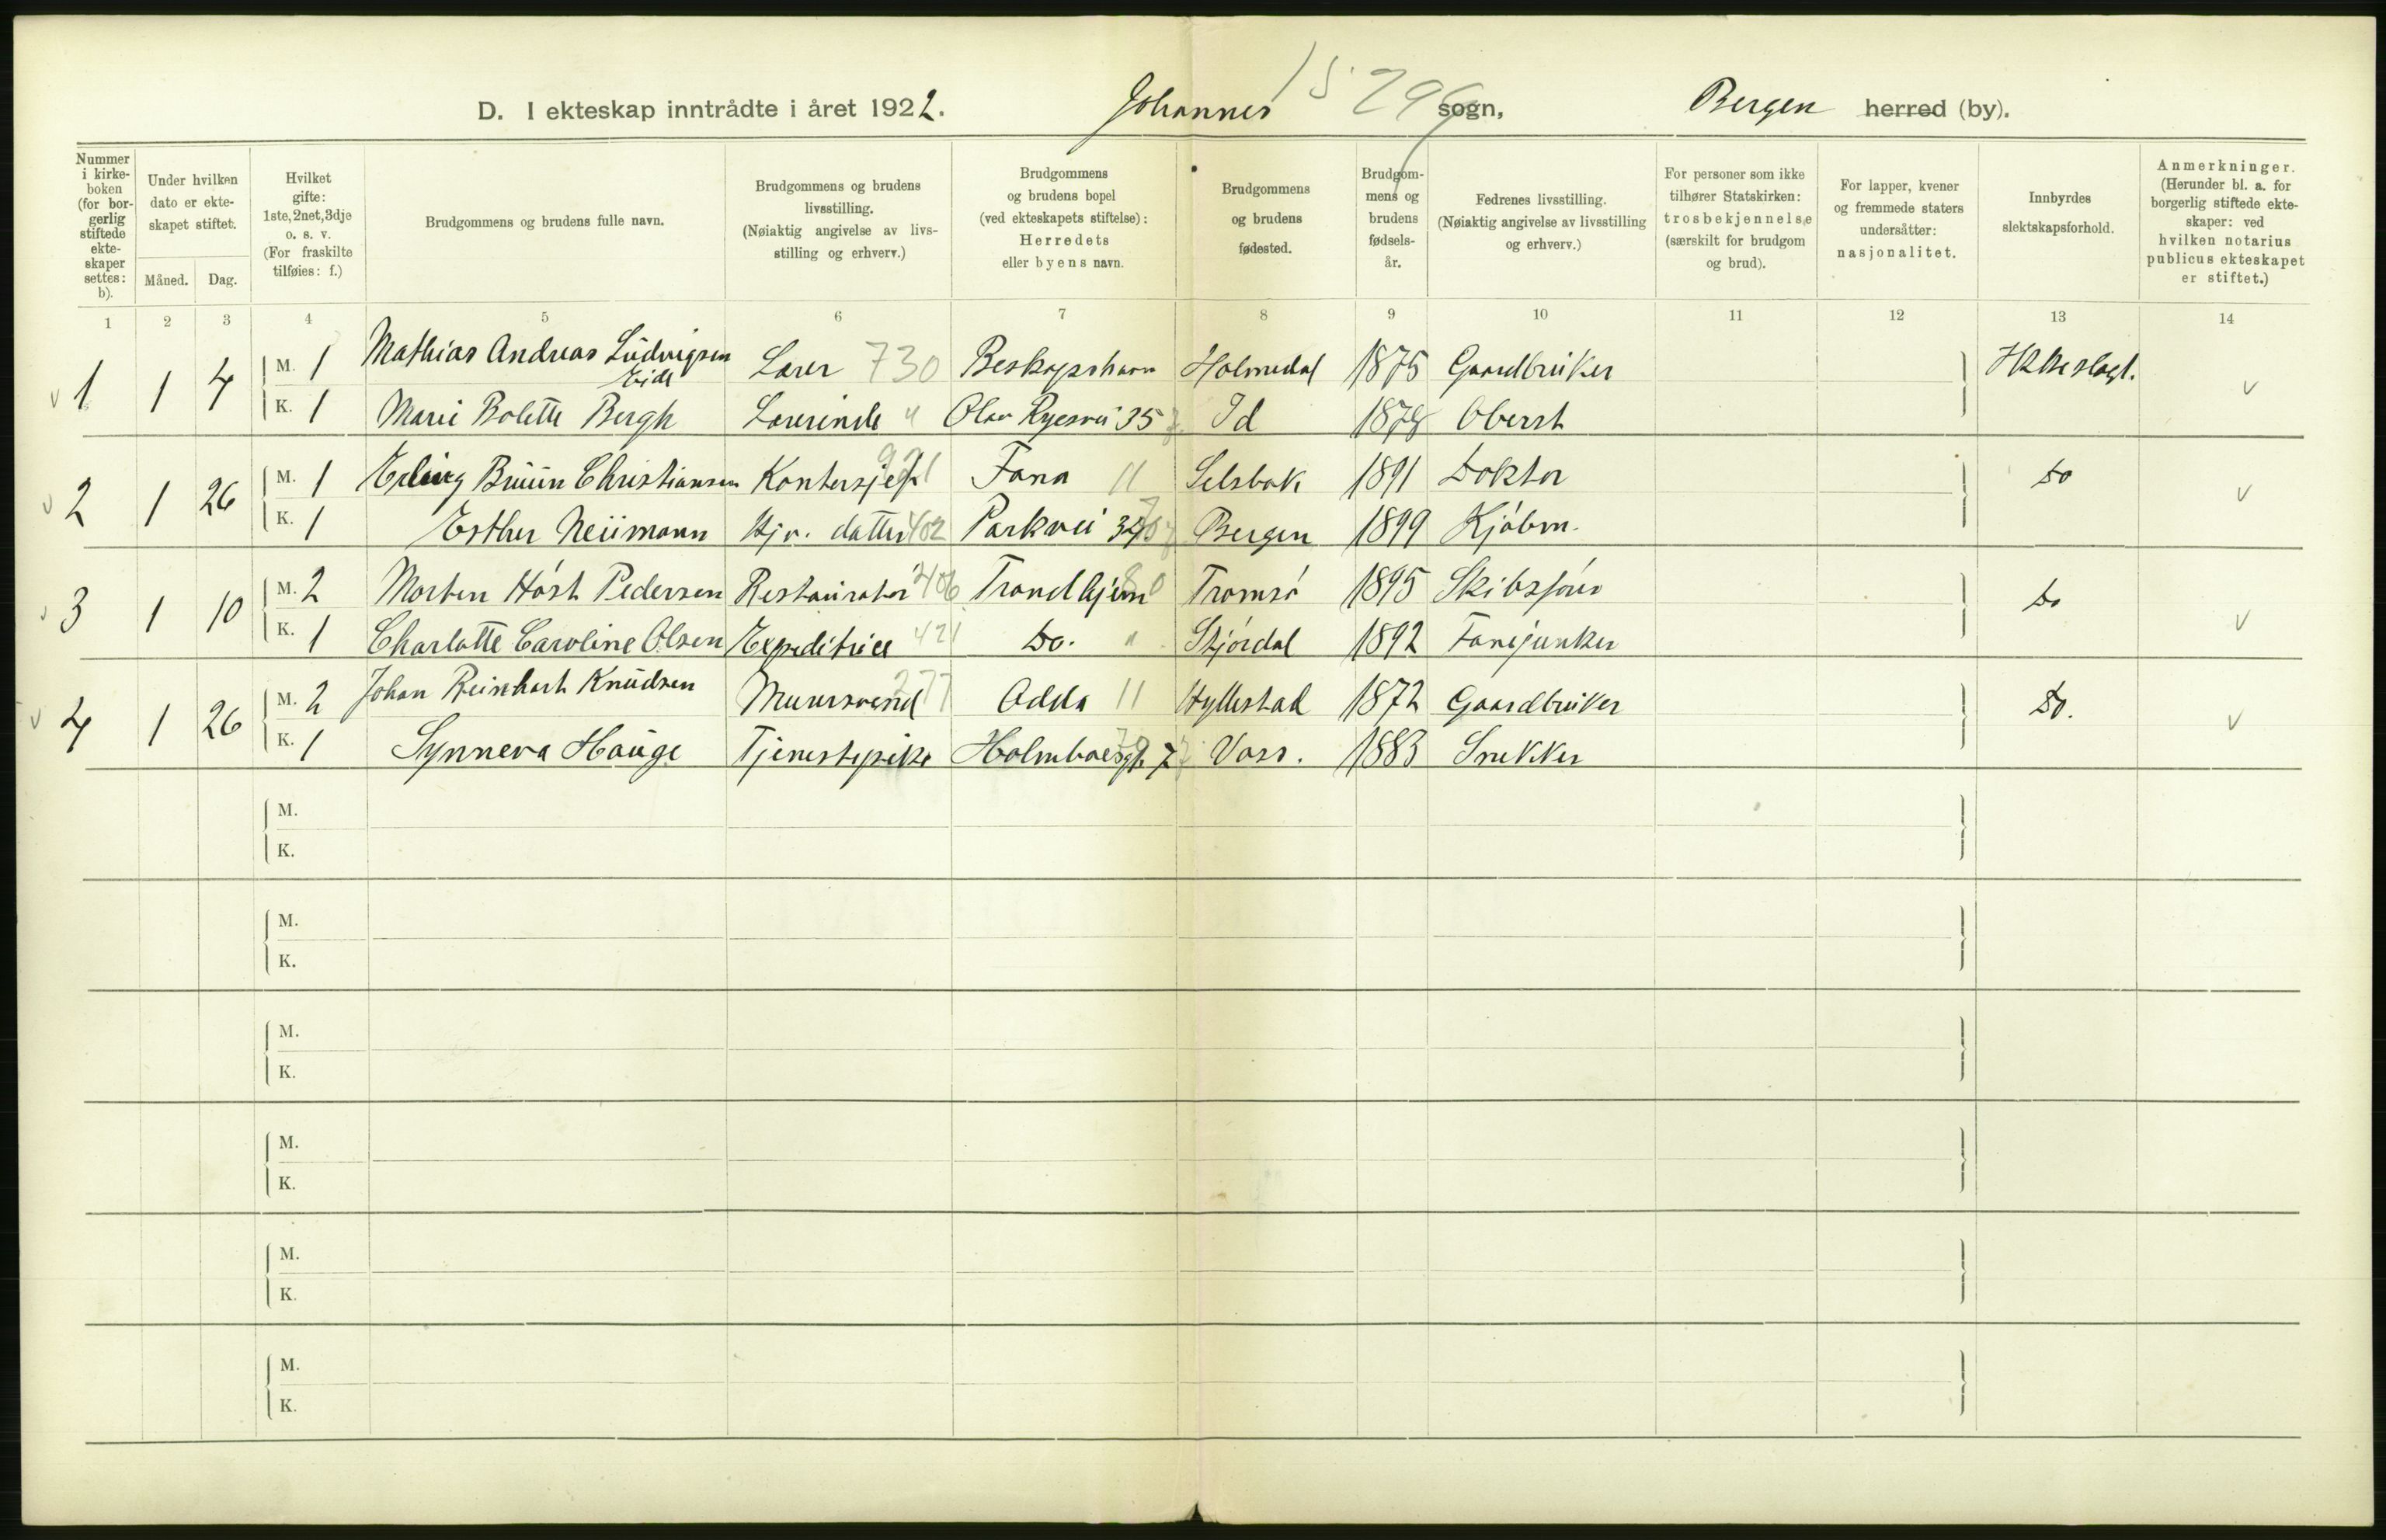 15 296
D. I ekteskap inntrådte i året 1922. Johannes sogn, Bergen herred (by).
Nummer i kirke-boken (for bor-gerlig stiftede ekte-skaper settes: b).
Under hvilken dato er ekte-skapet stiftet.
Måned. Dag.
Hvilket gifte: 1ste, 2net, 3dje o. s. v. (For fraskilte tilføies: f.)
Brudgommens og brudens fulle navn.
Brudgommens og brudens livsstilling. (Nøiaktig angivelse av livs-stilling og erhverv.)
Brudgommens og brudens bopel (ved ekteskapets stiftelse): Herredets eller byens navn.
Brudgommens og brudens fødested.
Brudgom-mens og brudens fødsels-år.
Fedrenes livsstilling. (Nøiaktig angivelse av livsstilling og erhverv.)
For personer som ikke tilhører Statskirken: trosbekjennelse (særskilt for brudgom og brud).
For lapper, kvener og fremmede staters undersåtter: nasjonalitet.
Innbyrdes slektskapsforhold.
Anmerkninger. (Herunder bl. a. for borgerlig stiftede ekte-skaper: ved hvilken notarius publicus ekteskapet er stiftet.)
1 2 3 4 5 6 7 8 9 10 11 12 13 14
v 1 1 4 M. 1 Mathias Andreas Ludvigsen Eide Lærer 730 Holmedal 1875 Gaardbruker v
K. 1 Marie Bolette Bergh Lærerinde " Olav Ryesvei 35 Id Oberst
v 2 1 26 M. 1 Erling Bruun Christiansen Kontorsjef 921 Fana 11 Selsbak 1891 Doktor Do v
K. 1 Esther Neumann Hjv. datter 402 Parkvei Bergen 1899 Kjøbm.
v 3 1 10 M. 2 Morten Høst Pedersen Restauratør 406 Trondhjem 80 Tromsø 1895 Skibsfører Do v
K. 1 Charlotte Caroline Olsen Expeditrice 421 Do. " Stjørdal 1892 Fanejunker
v 4 1 26 M. 2 Johan Reinhart Knudsen Murersvend 277 Odda 11 Hyllestad 1872 Gaardbruker Do. v
K. 1 Synneva Hauge Tjenestepike Holmboesgt. 7 Voss. 1883 Snekker
M.
K.
M.
K.
M.
K.
M.
K.
M.
K.
M.
K.